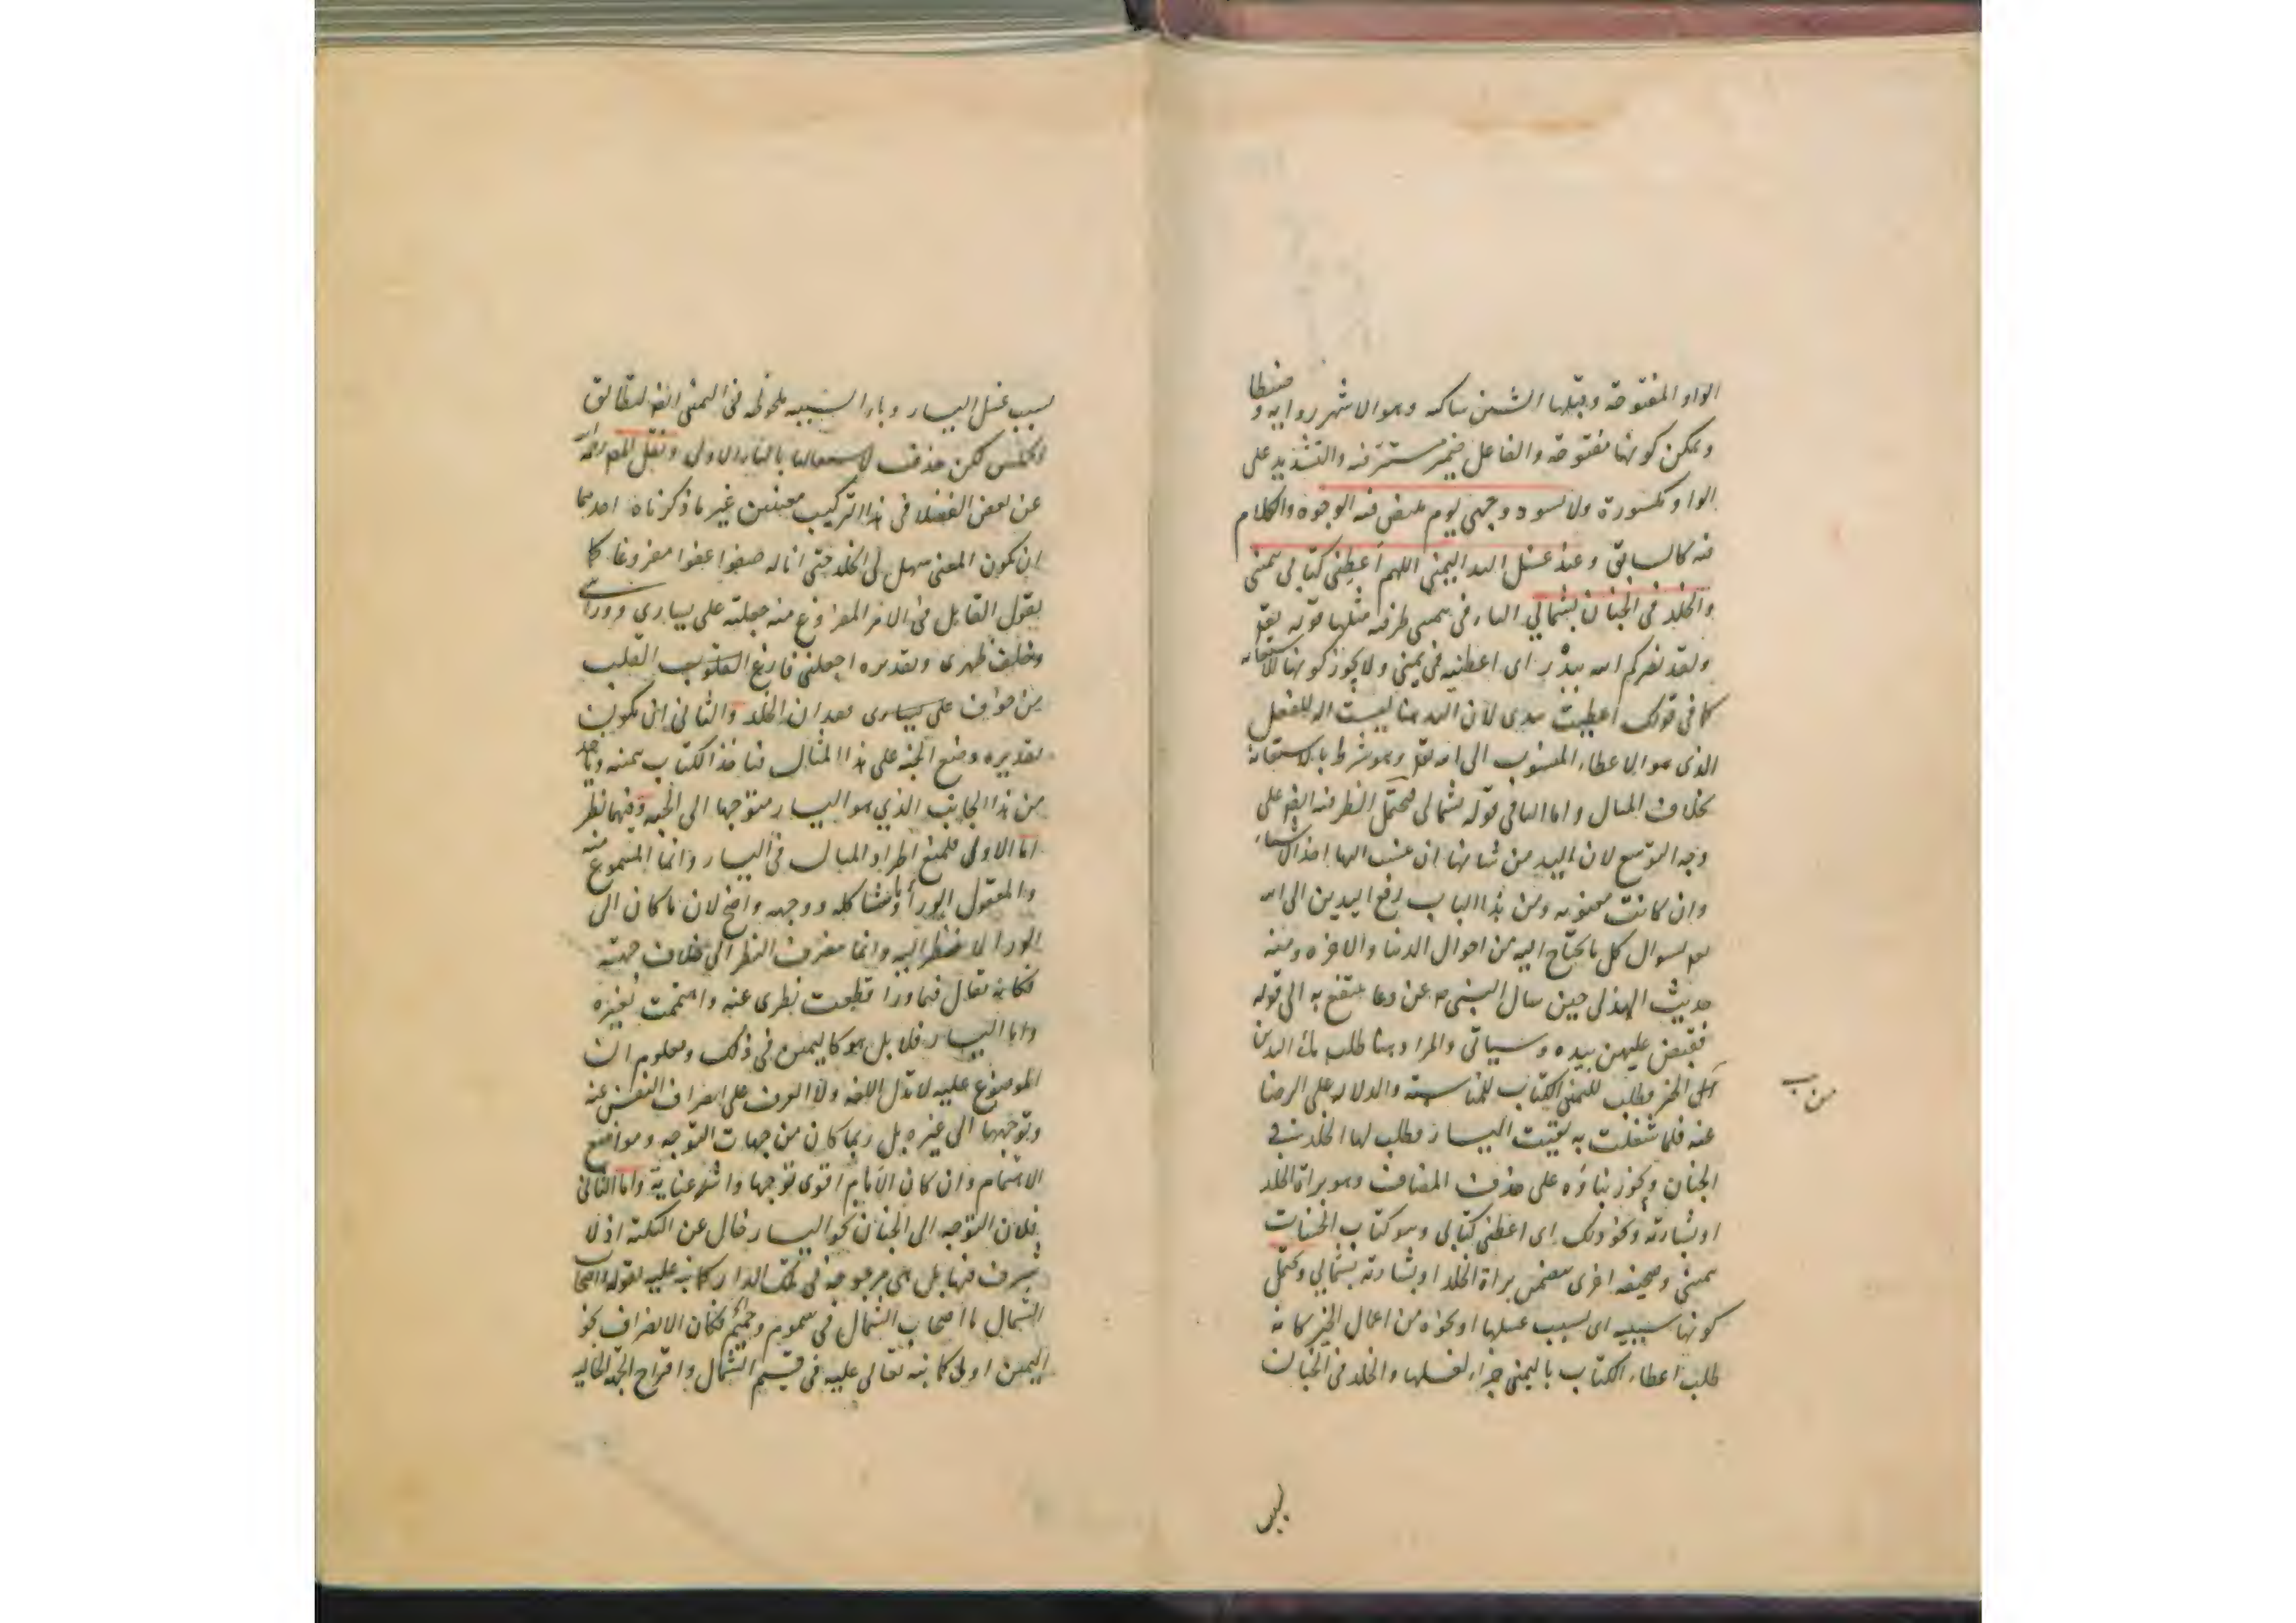 الواو المفتوحة وقبلها الشين ساكنه وهو الاشهر رواية و ضبطا
ويمكن كونها مفتوحة والفاعل ضمير مستتر فيه والتشديد على
الواو مكسورة ولا تسود وجهي يوم تبيض فيه الوجوه والكلام
فيه كالسابق وعند غسل اليد اليمنى اللهم أعطني كتابي بيمني
والخلد في الجنان بشمالي الباء في بيمني ظرفيه مثلها قوله تعالى
ولقد نصركم الله ببدر اى اعطنيه في يميني ولا يجوز كونها للاستعانه
كما في قولك اعطيت بيدى لان اليد هنا ليست اله للفعل
الذى هو الاعطاء المنسوب الى الله تعالى وهو شرط باء الاستعانة
بخلاف المثال واما الباء في قوله بشمالي فيحتمل الظرفيه ايضا على
وجه التوسع لان اليد من شانها ان ينسب اليها اخذ الاشياء
وان كانت معنويه ومن هذا الباب رفع اليدين الى الله
تعالى لسوال كل ما يحتاج اليه من احوال الدنيا والاخره ومنه
حديث الهذلي حين سال النبي ص عن دعا ينتفع به الى قوله
فقبض عليهن بيده وسياتي والمراد هنا طلب ملأ اليدين
من الخير فطلب لليمنى الكتاب للمناسبة والدلاله على الرضا
عنه فلما شغلت به بقيت اليسار فطلب لها الخلد في
الجنان ويجوز بناؤه على حذف المضاف وهو براة الخلد
او بشارته ونحو ذلك اى اعطني كتابي وهو كتاب الحسنات
بيمني وصحيفه اخرى تتضمن براة الخلد او بشارته بشمالي ويحتمل
كونها سببيه اى بسبب غسلها او نحوه من اعمال الخير كانه
طلب اعطاء الكتاب باليمنى جزاء لغسلها والخلد في الجنان
بسبب
بسبب غسل اليسار وباء السببيه ملحوظه في اليمنى ايضا لتطابق
لكن حذفت لاستعمالها بالباء الاولى ونقل المص رحمه الله
عن بعض الفضلا في هذا التركيب معنيين غير ما ذكرناه احدهما
ان يكون المعنى سهل لي الخلد حتى اناله صفوا عفوا مفروغا كما
يقول القايل في الامر المفروغ منه جعلته على يسارى ووراى
وخلف ظهرى وتقديره اجعلني فارغ القلب
من خوف على يسارى بعد ان الخلد والثاني ان يكون
تقديره وضع الجنه على هذا المثال فياخذ الكتاب بيمينه وياخذ
من هذا الجانب الذي هو اليسار متوجها الى الجنه وفيهما نظر
اما الاولى فلمنع اطراد المثال في اليسار وانما المسموع منه
والمعقول الورأ وما شاكله ووجهه واضح لان ما كان الى
الورا لا ينظر اليه وانما مصرف النظر الى خلاف جهته
فكانه يقال فيما ورا قطعت نظرى عنه واهتممت بغيره
واما اليسار فلا بل هو كاليمين في ذلك ومعلوم ان
الموضوع عليه لا تدل اللغه ولا العرف على انصراف النفس عنه
وتوجهها الى غيره بل ربما كان من جهات التوجه ومواضع
الاهتمام وان كان الامام اقوى توجها واشد عناية واما الثاني
فلان التوجه الى الجنان نحو اليسار خال عن النكته اذ لا
شرف فيها بل هي مرجوحة في تلك الدار كما نبه عليه بقوله واصحاب
الشمال ما اصحاب الشمال في سموم وحميم فكان الانصراف نحو
اليمين اولى كما نبه تعالى عليه في قسيم الشمال واقتراح الجهة الخاليه